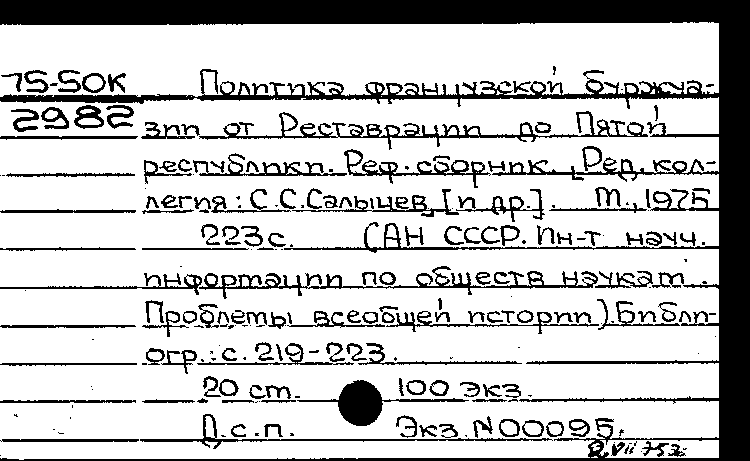 75-50К Политика французской буржуа-
2982 зии от Реставрации до Пятой
республики. Реф. сборник. Ред. кол-
легия: С.С.Салычев [и др.]. М., 1975
223с. (АН СССР. Ин-т науч.
информации по обществ наукам.
Проблемы всеобщей истории). Библи-
огр.: с. 219-223.
20 см. 100 экз.
Д.с.п. Экз. N00095.